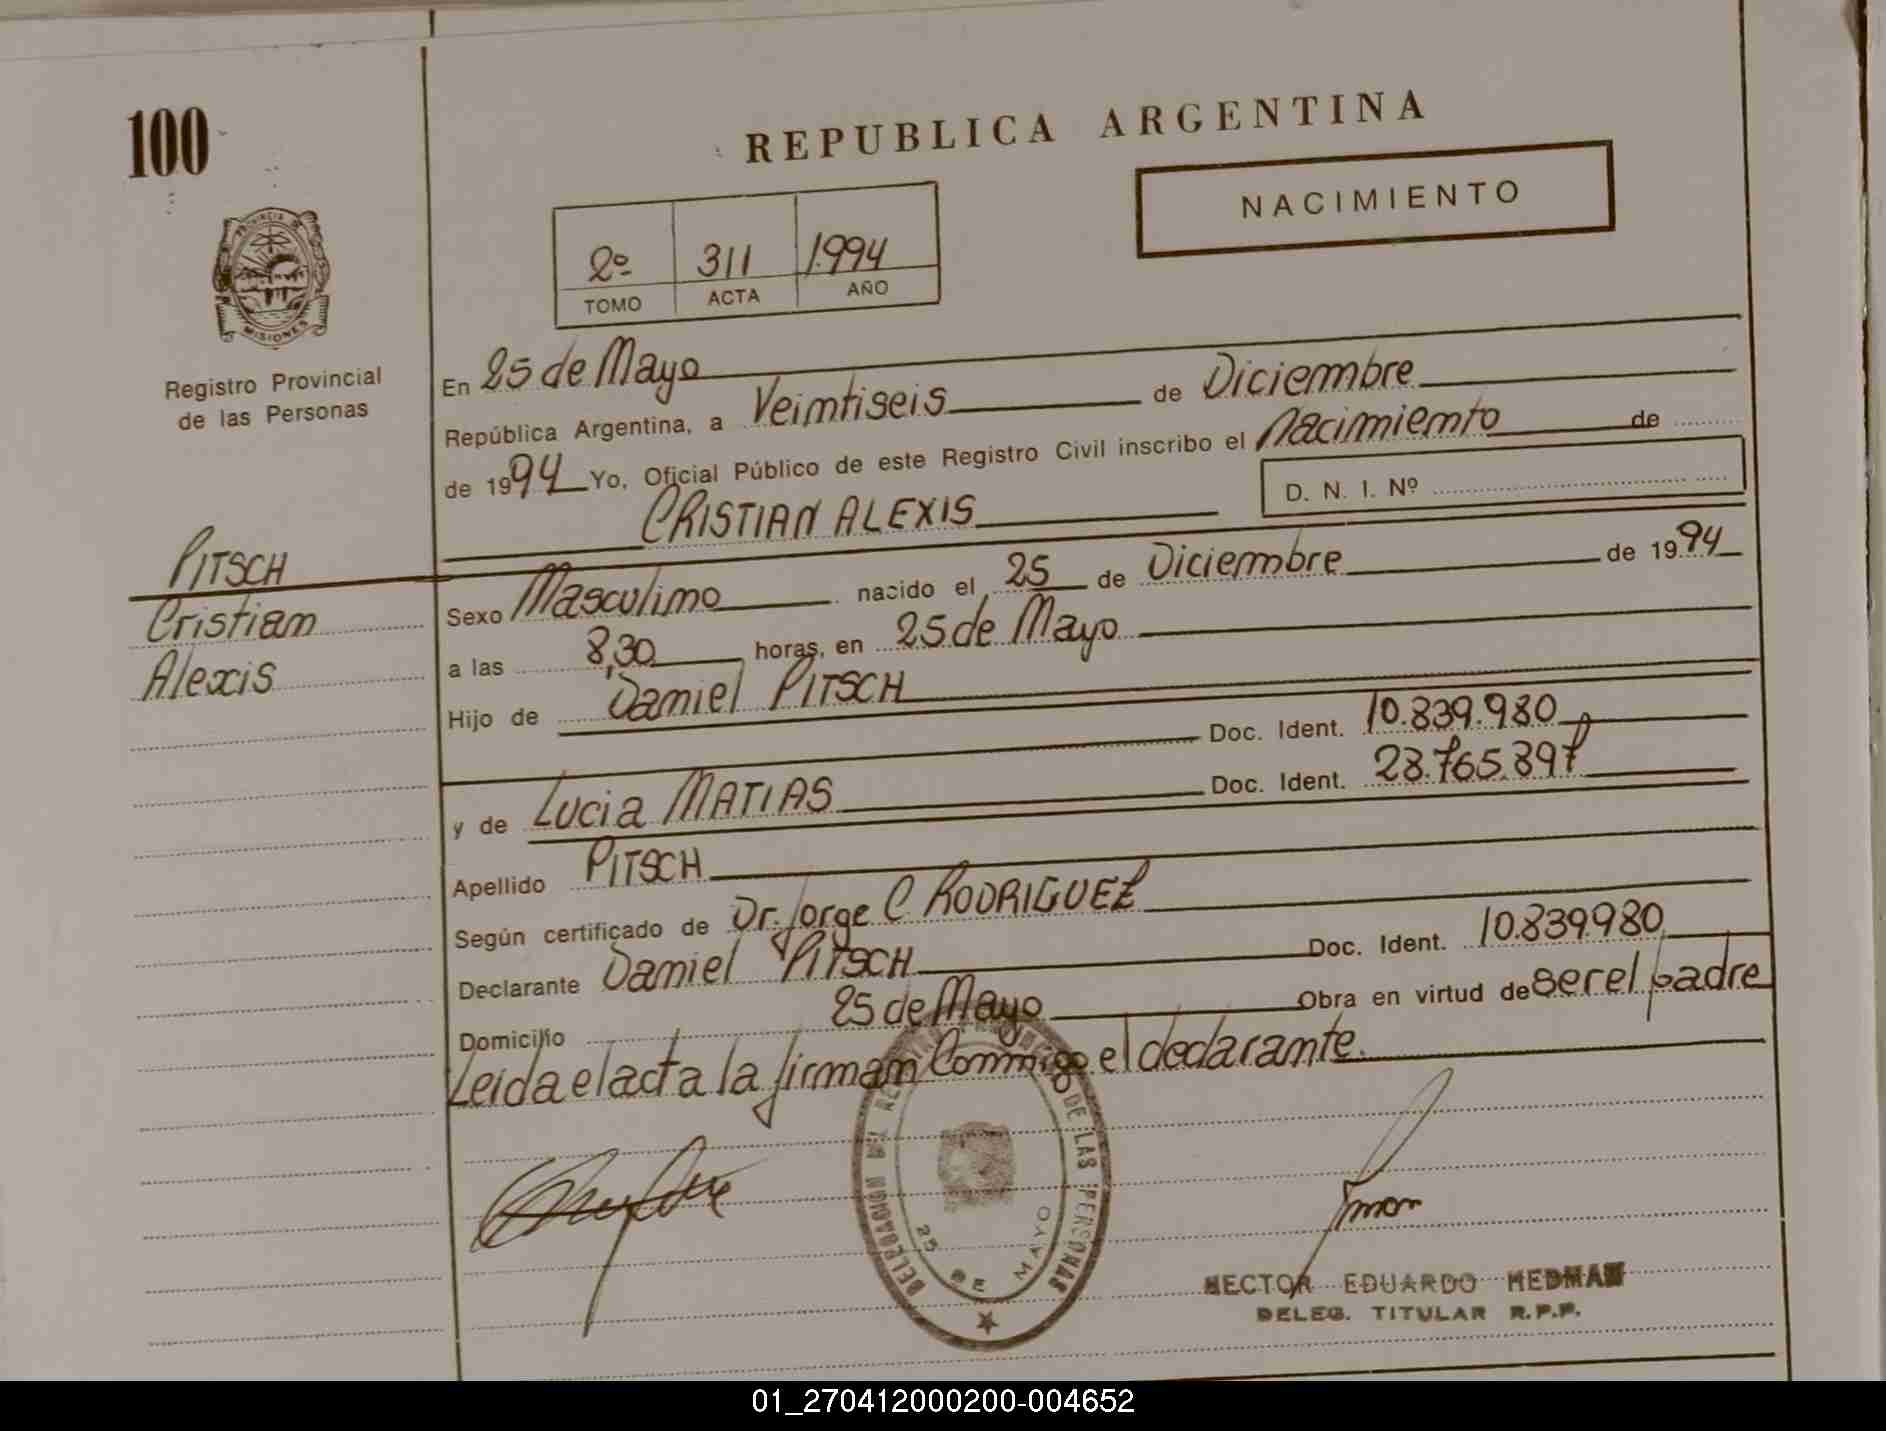 100
REPUBLICA ARGENTINA
NACIMIENTO
2º 311 1994
TOMO ACTA AÑO
PROVINCIA DE
MISIONES
Registro Provincial
de las Personas
En 25 de Mayo
República Argentina, a Veintiseis de Diciembre
de 1994 Yo, Oficial Público de este Registro Civil inscribo el nacimiento de
CRISTIAN ALEXIS D. N. I. Nº
PITSCH
Cristian
Alexis
Sexo Masculino nacido el 25 de Diciembre de 1994
a las 8,30 horas, en 25 de Mayo
Hijo de Daniel PITSCH
Doc. Ident. 10.839.980
y de Lucia MATIAS Doc. Ident. 23.765.897
Apellido PITSCH
Según certificado de Dr. Jorge C RODRIGUEZ
Declarante Daniel PITSCH Doc. Ident. 10.839.980
Domicilio 25 de Mayo Obra en virtud de ser el padre
Leida el acta la firman Conmigo el declarante.
DELEGACION DEL REGISTRO DE LAS PERSONAS
25 DE MAYO
HECTOR EDUARDO HEDMAN
DELEG. TITULAR R.P.P.
01_270412000200-004652